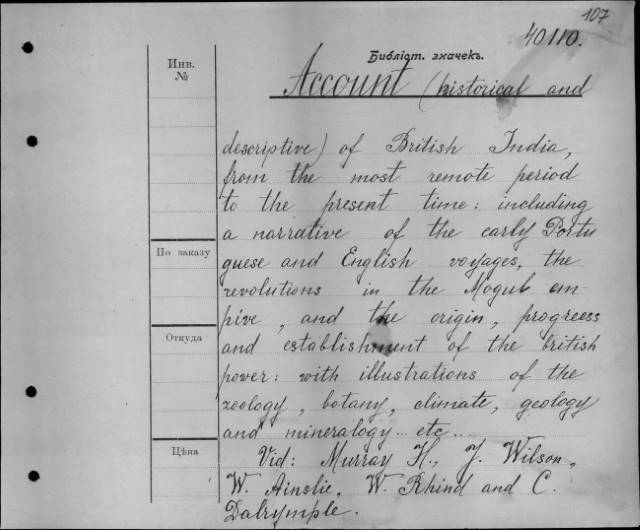 107
40110.
Библіот. значекъ.
Инв.
№
Account (historical and
descriptive) of British India,
from the most remote period
to the present time: including
a narrative of the early Portu
guese and English voyages, the
revolutions in the Mogul em-
pire, and the origin, progreess
and establishment of the british
power: with illustrations of the
zoology, botany, climate, geology
and mineralogy.. etc...
Vid: Murray H., J. Wilson,
W. Ainslie, W. Rhind and C.
Dalrymple.
По заказу
Откуда
Цѣна